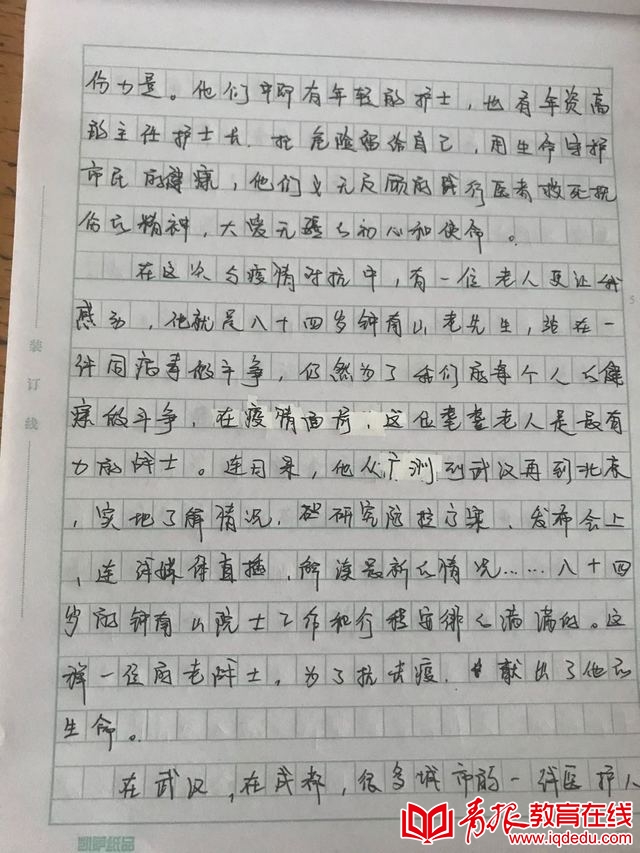 份力量。他们中即有年轻的护士，也有年资高
的主任护士长，把危险留给自己，用生命守护
市民的健康，他们义无反顾的践行医者救死扶
伤的精神，大爱无疆的初心和使命。
在这次与疫情对抗中，有一位老人更让我
感动，他就是八十四岁钟南山老先生，站在一
件同病毒的斗争，仍然为了我们的每个人的健
康的斗争，在疫情面前，这位耄耋老人是最有
力的战士。连日来，他从广州到武汉再到北京
，实地了解情况，研究防控方案，发布会上
，连线媒体直播，解读最新的情况……八十四
岁的钟南山院士工作和行程安排的满满的。这
样一位的老战士，为了抗击疫，献出了他的
生命。
在武汉，在成都，很多城市的一线医护人
装订线
5
品诺草稿
青报教育在线
www.iqdedu.com